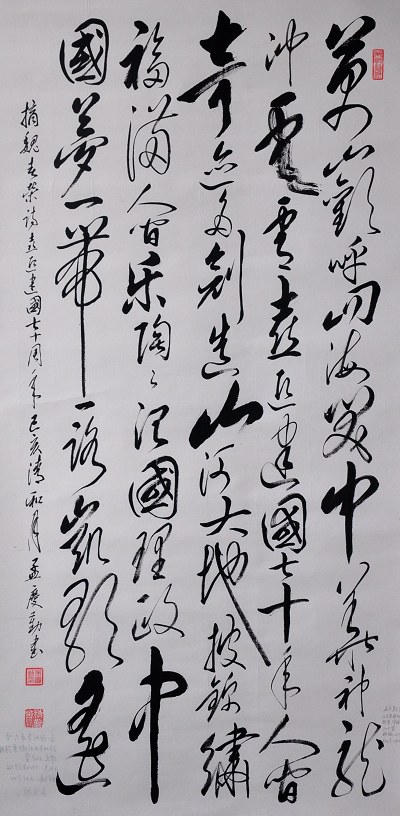 萬山歡呼四海笑中華神龍
冲雲霄喜迎建國七十年人间
奇迹多創造山河大地披錦繡
福滿人间乐陶々治國理政中
國夢一带一路凱歌遥
摘魏春荣诗喜迎建國七十周年己亥清和月孟慶勤书